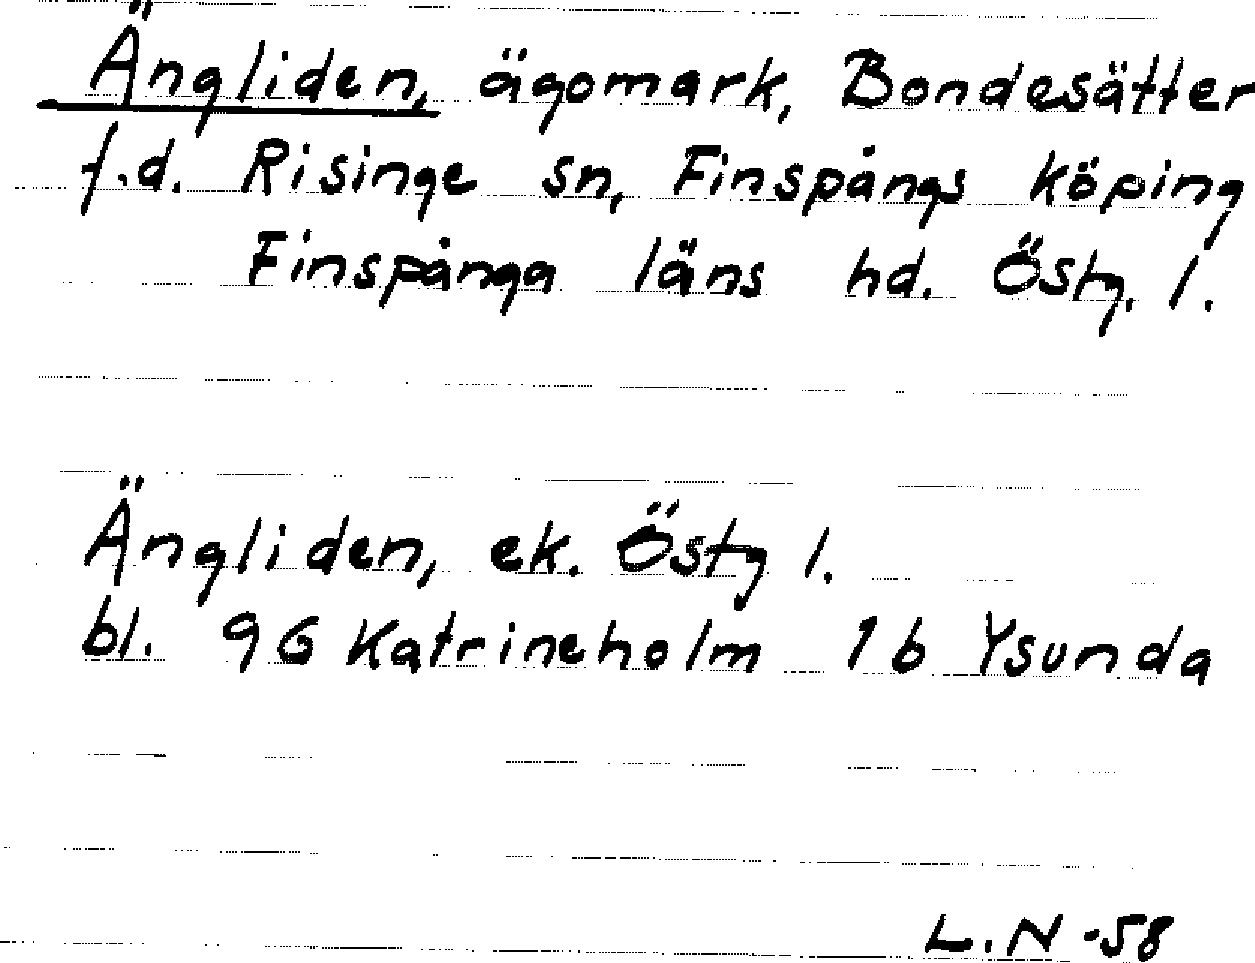 Ängliden, ägomark, Bondesätter
f.d. Risinge sn, Finspångs köping
Finspånga läns hd. Östg. l.
Ängliden, ek. Östg l.
bl. 9G Katrineholm 1b Ysunda
L.N -58